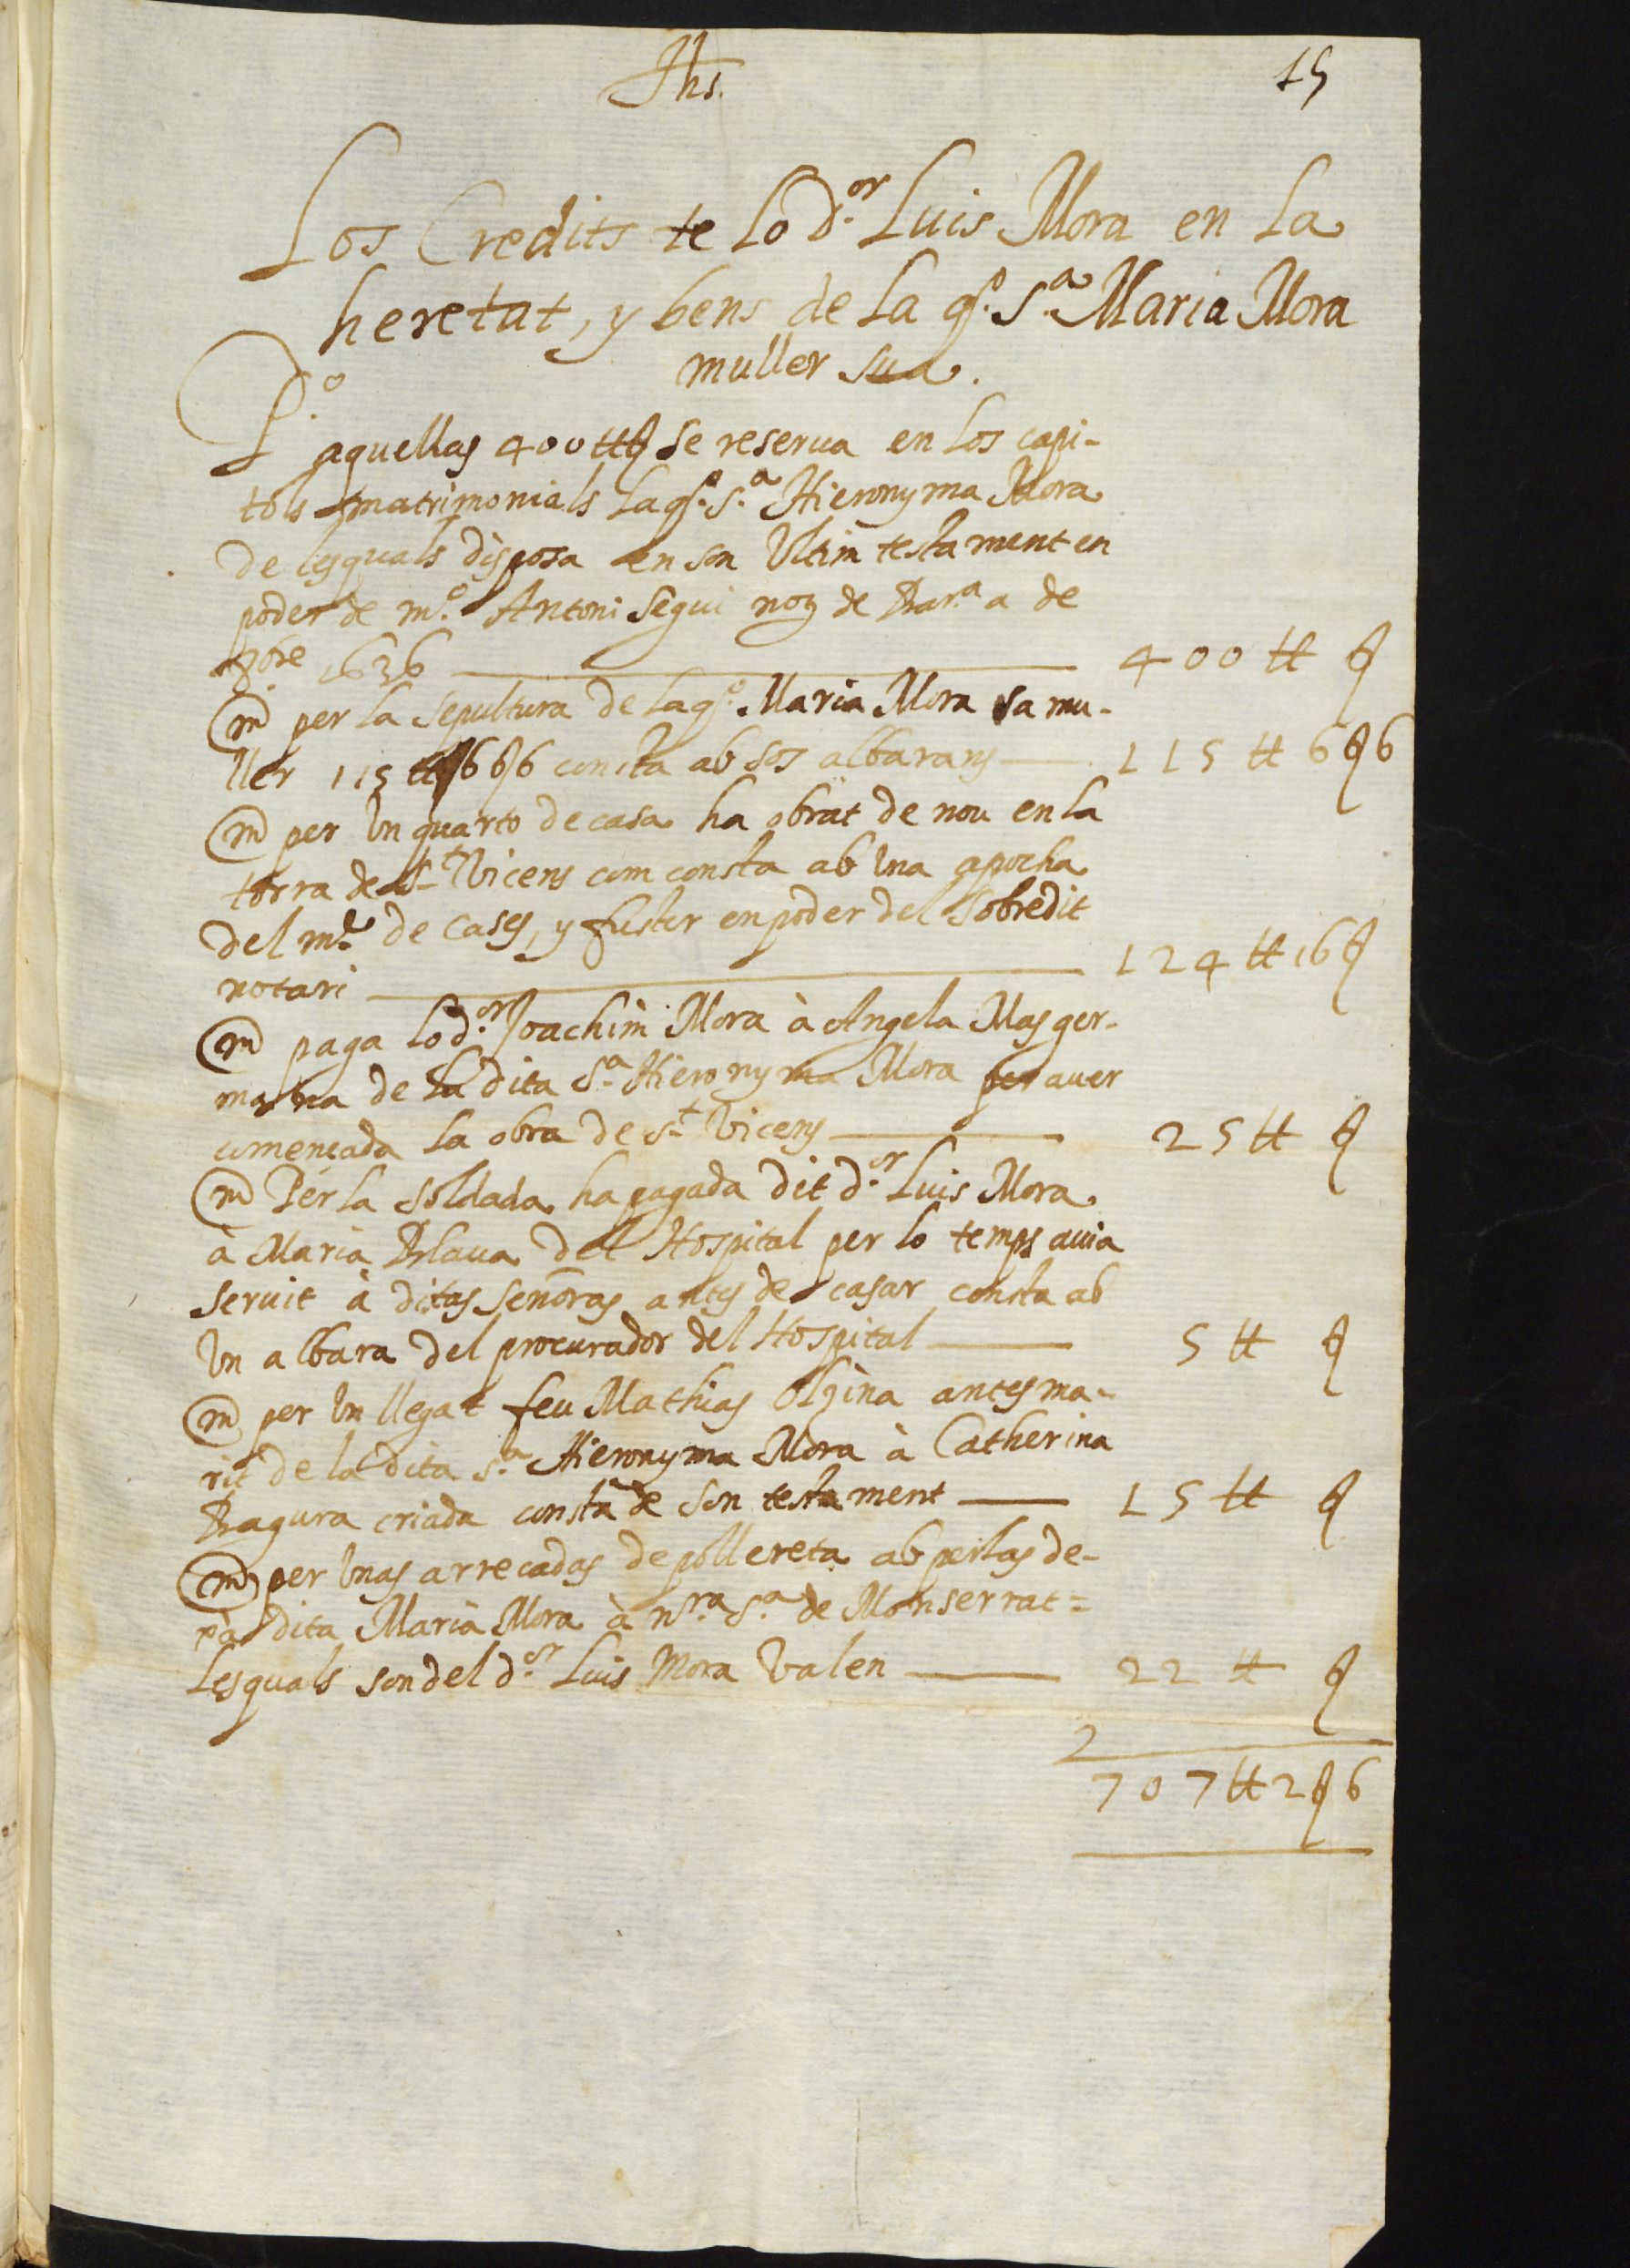 Jhs.
15
Los Credits te Lo d.or Luis Mora en La
heretat, y bens de La q.o S.a Maria Mora
muller sua.
P.o aquellas 400 ₶ ẞ se reserua en los capi-
tols matrimonials La q.o S.a Hieronyma Mora
de lesquals disposa en son Vltim testament en
poder de m.o Antoni Segui not de Bar.a a de
1636 — 400 ₶ ẞ
Itm per la sepultura de la q.o Maria Mora sa mu-
ller 115 ₶ 6 ẞ 6 consta ab sos albarans — 115 ₶ 6 ẞ 6
Itm per Vn quarto de casa ha obrat de nou en la
torra de S.t Vicens com consta ab Vna apocha
del m.e de cases, y fuster en poder del sobredit
notari — 124 ₶ 16 ẞ
Itm paga lo d.or Joachim Mora à Angela Mas ger-
mana de la dita S.a Hieronyma Mora per auer
comensada la obra de S.t Vicens — 25 ₶ ẞ
Itm Per la soldada ha pagada dit d.or Luis Mora
à Maria Blaua del Hospital per lo temps auia
seruit à ditas señoras antes de casar consta ab
Vn albara del procurador del Hospital — 5 ₶ ẞ
Itm per Vn llegat feu Mathias Olzina antes ma-
rit de la dita S.a Hieronyma Mora à Catherina
Ragura criada consta de son testament — 15 ₶ ẞ
Itm per Vnas arrecadas de pollereta ab perlas de-
xà dita Maria Mora à nr.a S.a de Monserrat =
Lesquals son del d.or Luis Mora Valen — 22 ₶ ẞ
2
707 ₶ 2 ẞ 6